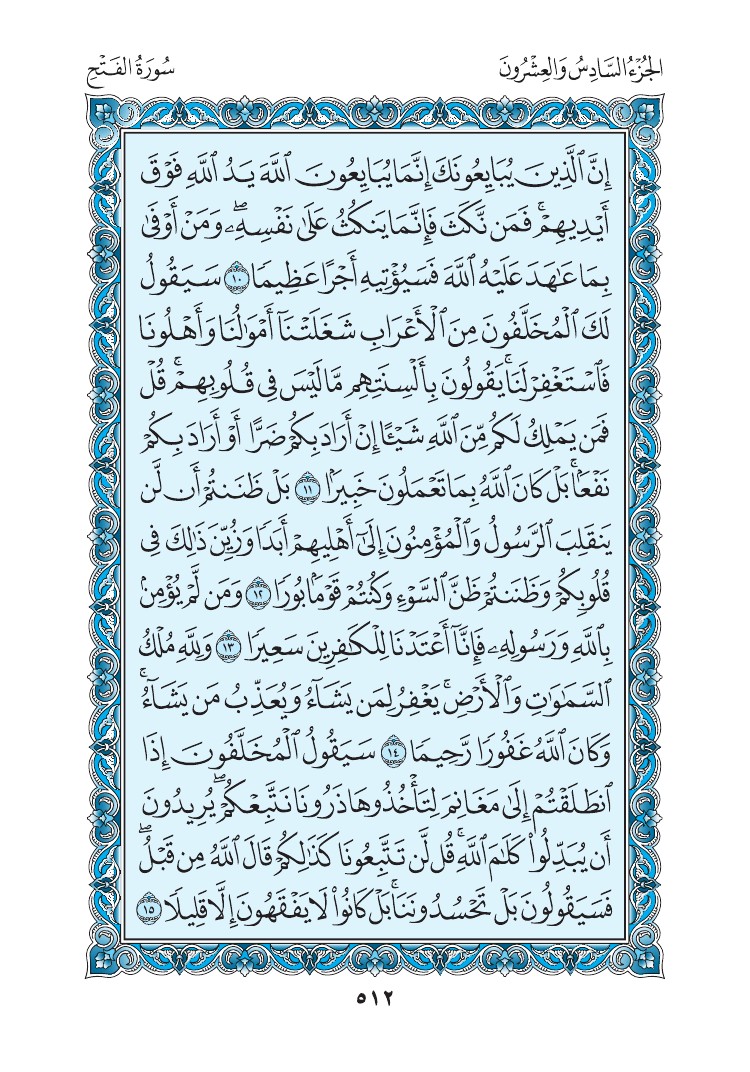 الجُزْءُ السَّادِسُ وَالعِشْرُونَ
سُورَةُ الفَتْحِ
إِنَّ ٱلَّذِينَ يُبَايِعُونَكَ إِنَّمَا يُبَايِعُونَ ٱللَّهَ يَدُ ٱللَّهِ فَوْقَ
أَيْدِيهِمْۚ فَمَن نَّكَثَ فَإِنَّمَا يَنكُثُ عَلَىٰ نَفْسِهِۦۖ وَمَنْ أَوْفَىٰ
بِمَا عَٰهَدَ عَلَيْهُ ٱللَّهَ فَسَيُؤْتِيهِ أَجْرًا عَظِيمًا ١٠ سَيَقُولُ
لَكَ ٱلْمُخَلَّفُونَ مِنَ ٱلْأَعْرَابِ شَغَلَتْنَآ أَمْوَٰلُنَا وَأَهْلُونَا
فَٱسْتَغْفِرْ لَنَاۚ يَقُولُونَ بِأَلْسِنَتِهِم مَّا لَيْسَ فِى قُلُوبِهِمْۚ قُلْ
فَمَن يَمْلِكُ لَكُم مِّنَ ٱللَّهِ شَيْـًٔا إِنْ أَرَادَ بِكُمْ ضَرًّا أَوْ أَرَادَ بِكُمْ
نَفْعَۢاۚ بَلْ كَانَ ٱللَّهُ بِمَا تَعْمَلُونَ خَبِيرَۢا ١١ بَلْ ظَنَنتُمْ أَن لَّن
يَنقَلِبَ ٱلرَّسُولُ وَٱلْمُؤْمِنُونَ إِلَىٰٓ أَهْلِيهِمْ أَبَدًا وَزُيِّنَ ذَٰلِكَ فِى
قُلُوبِكُمْ وَظَنَنتُمْ ظَنَّ ٱلسَّوْءِ وَكُنتُمْ قَوْمَۢا بُورًا ١٢ وَمَن لَّمْ يُؤْمِنۢ
بِٱللَّهِ وَرَسُولِهِۦ فَإِنَّآ أَعْتَدْنَا لِلْكَٰفِرِينَ سَعِيرًا ١٣ وَلِلَّهِ مُلْكُ
ٱلسَّمَٰوَٰتِ وَٱلْأَرْضِۚ يَغْفِرُ لِمَن يَشَآءُ وَيُعَذِّبُ مَن يَشَآءُۚ
وَكَانَ ٱللَّهُ غَفُورًا رَّحِيمًا ١٤ سَيَقُولُ ٱلْمُخَلَّفُونَ إِذَا
ٱنطَلَقْتُمْ إِلَىٰ مَغَانِمَ لِتَأْخُذُوهَا ذَرُونَا نَتَّبِعْكُمْۖ يُرِيدُونَ
أَن يُبَدِّلُوا۟ كَلَٰمَ ٱللَّهِۚ قُل لَّن تَتَّبِعُونَا كَذَٰلِكُمْ قَالَ ٱللَّهُ مِن قَبْلُۖ
فَسَيَقُولُونَ بَلْ تَحْسُدُونَنَاۚ بَلْ كَانُوا۟ لَا يَفْقَهُونَ إِلَّا قَلِيلًا ١٥
٥١٢